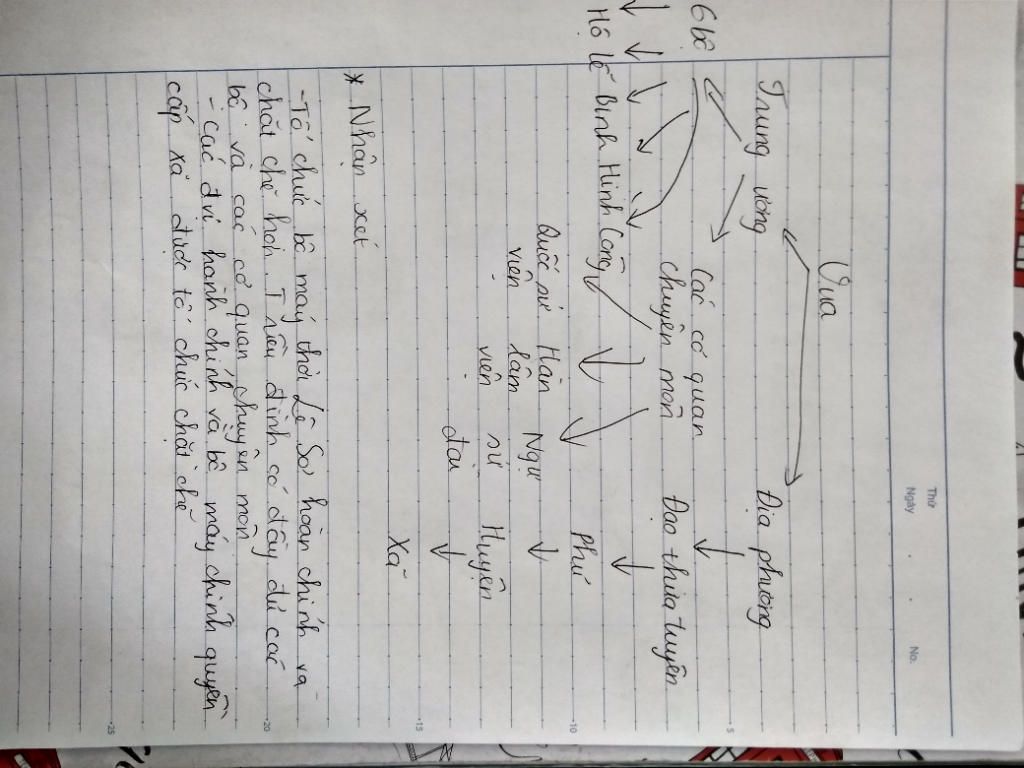 Thứ
Ngày
No.
Vua
Trung ương Địa phương
6 bộ Các cơ quan
chuyên môn Đạo thừa tuyên
Hộ Lễ Binh Hình Công Phủ
Quốc sử Hàn Ngự
viện lâm sử Huyện
viện đài
Xã
* Nhận xét
- Tổ chức bộ máy thời Lê Sơ hoàn chỉnh và
chặt chẽ hơn. Triều đình có đầy đủ các
bộ và các cơ quan chuyên môn
- các đvị hành chính và bộ máy chính quyền
cấp xã được tổ chức chặt chẽ
5
10
15
20
25